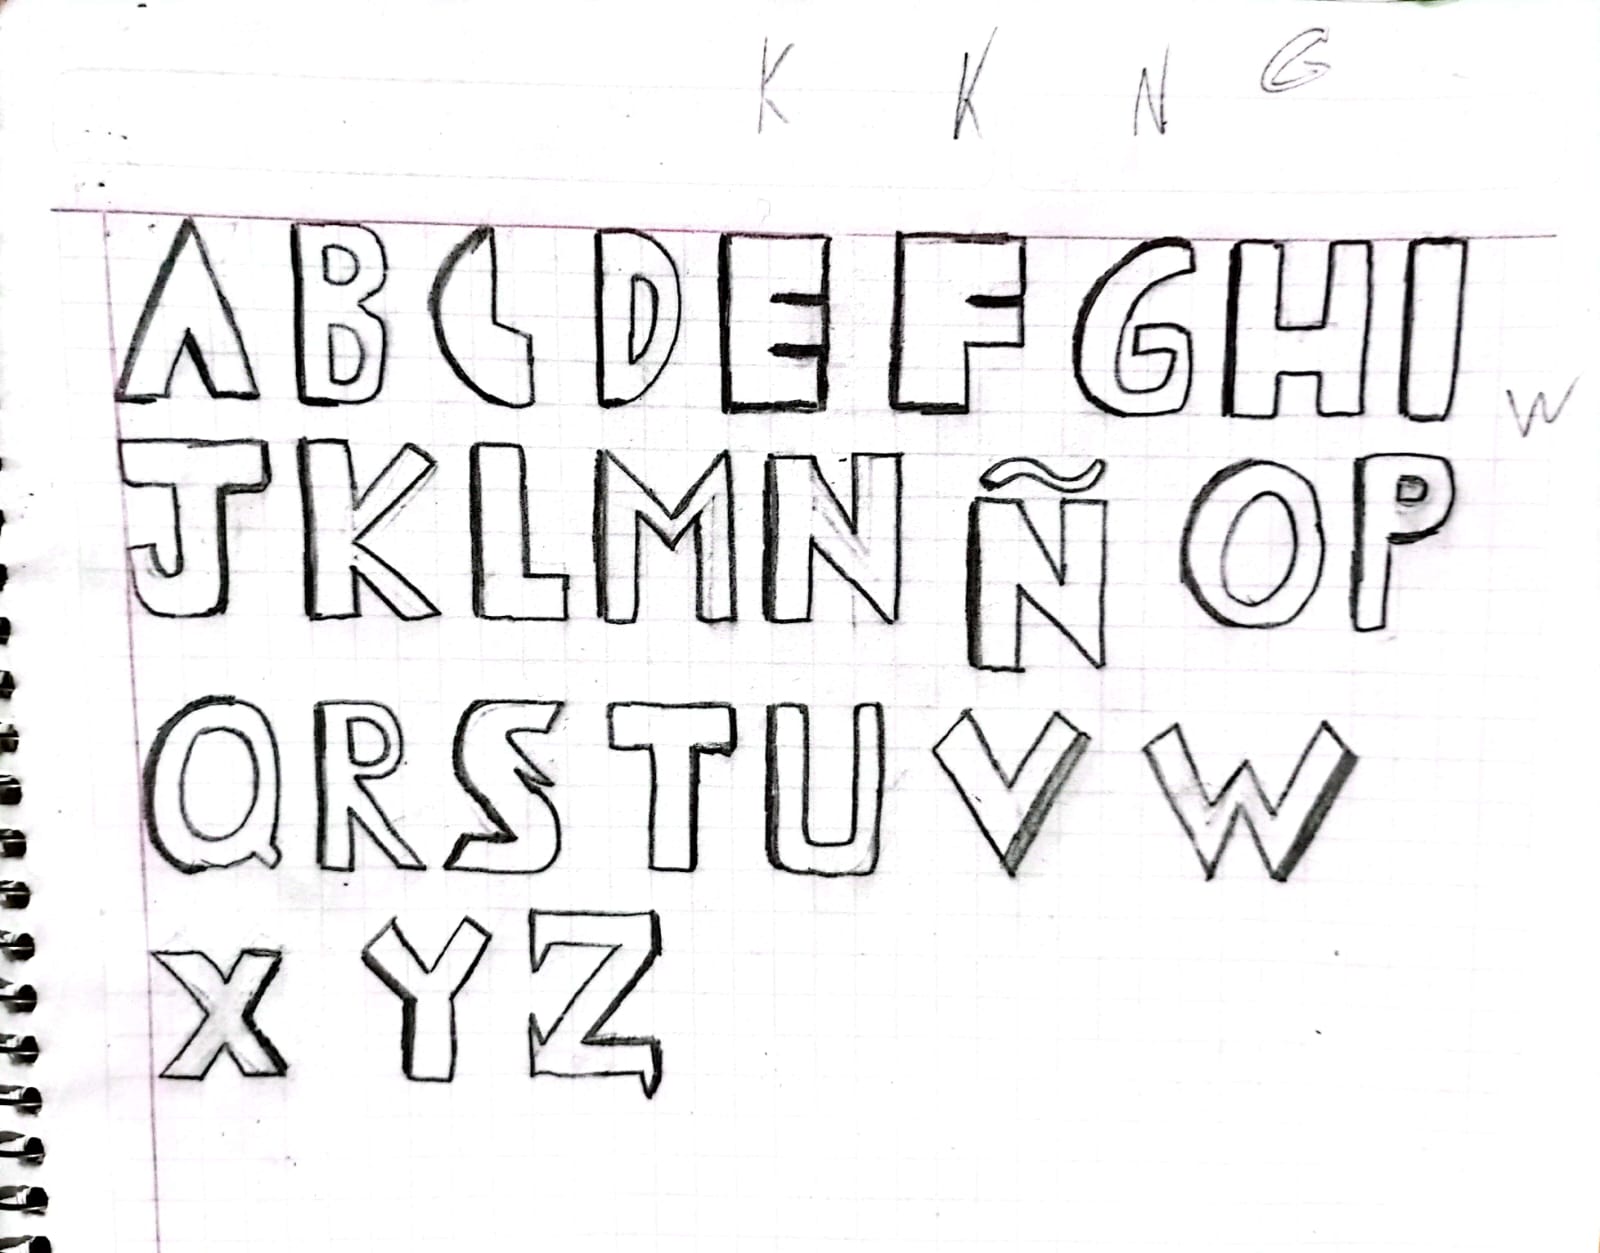 K K N G
A B C D E F G H I
W
J K L M N Ñ O P
Q R S T U V W
X Y Z